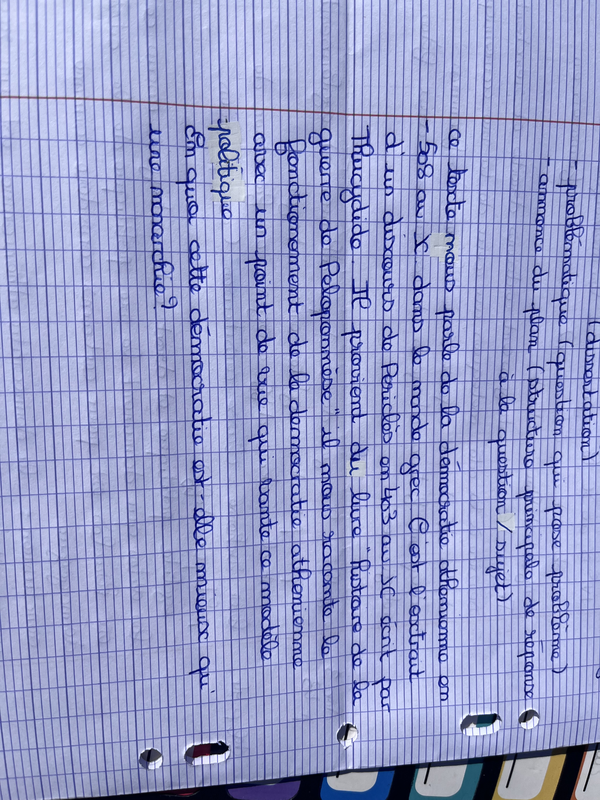 (dissertation)
- problématique (question qui pose problème)
- annonce du plan (structure principale de réponse
à la question / sujet)
ce texte nous parle de la démocratie athénienne en
- 508 av JC dans le monde grec C'est l'extrait
d'un discours de Périclès en 403 av JC écrit par
Thucydide. Il provient du livre "histoire de la
guerre de Péloponnèse" il nous raconte le
fonctionement de la democratie athenienne
avec un point de vue qui vante ce modèle
politique
En quoi cette démocratie est-elle mieux qui
une monarchie?